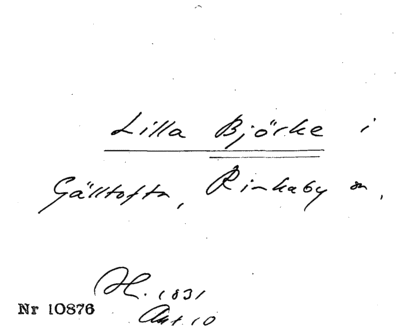 Lilla Björke i
Gälltofta, Rinkaby sn,
H. 1831
Ant. 10
Nr 10876